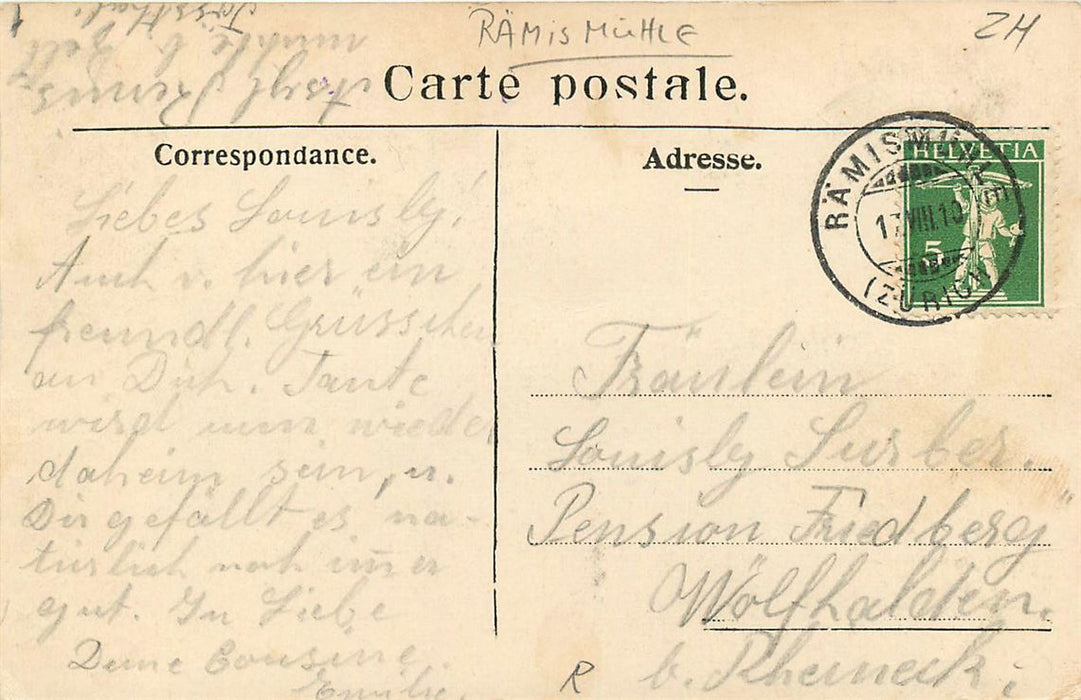 RÄMISMÜHLE
ZH
Asyl Rämis-
mühle b. Zell
Tössthal
Carte postale.
Correspondance.
Liebes Louisly!
Auch v. hier ein
freundl. Grüsschen
an Dich. Tante
wird nun wieder
daheim sein, u.
Dir gefällt es na-
türlich noch im̅er
gut. In Liebe
Deine Cousine
Emilie.
Adresse.
RÄMISMÜHLE
17.VIII.10
(ZÜRICH)
HELVETIA
5
Fräulein
Louisly Surber.
Pension Friedberg"
Wolfhalden.
b. Rheineck.
R